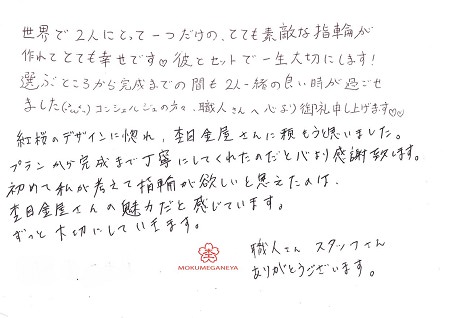 世界で2人にとって一つだけの、とても素敵な指輪が
作れてとても幸せです♡彼とセットで一生大切にします!
選ぶところから完成までの間も2人一緒の良い時が過ごせ
ました コンシェルジュの方々、職人さんへ心より御礼申し上げます♡♡
紅桜のデザインに惚れ、杢目金屋さんに頼もうと思いました。
プランから完成まで丁寧にしてくれたのだと心より感謝致します。
初めて私が考えて指輪が欲しいと思えたのは、
杢目金屋さんの魅力だと感じています。
ずっと大切にしていきます。
職人さん スタッフさん
ありがとうございます。
MOKUMEGANEYA